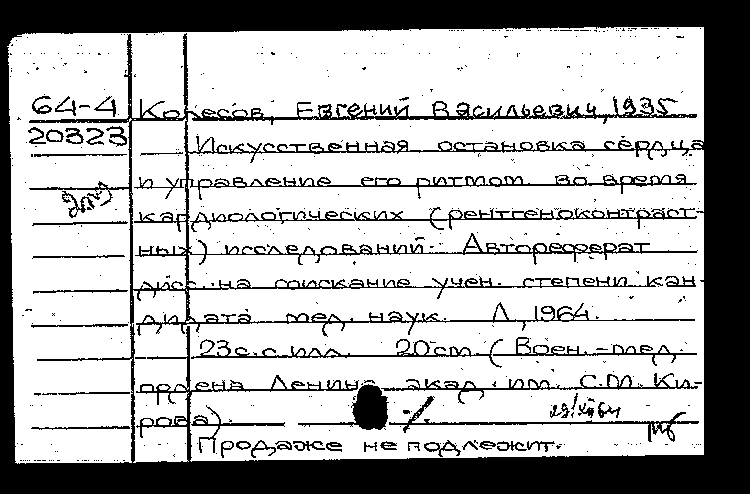 64-4 Колесов, Евгений Васильевич, 1935
20323
Искусственная остановка сердца
и управление его ритмом во время
кардиологических (рентгеноконтраст-
ных) исследований. Автореферат
дисс. на соискание учен. степени кан-
дидата мед. наук. Л, 1964.
23 с. с илл. 20 см. (Воен.-мед.
ордена Ленина акад. им. С.М. Ки-
рова).
Продаже не подлежит.